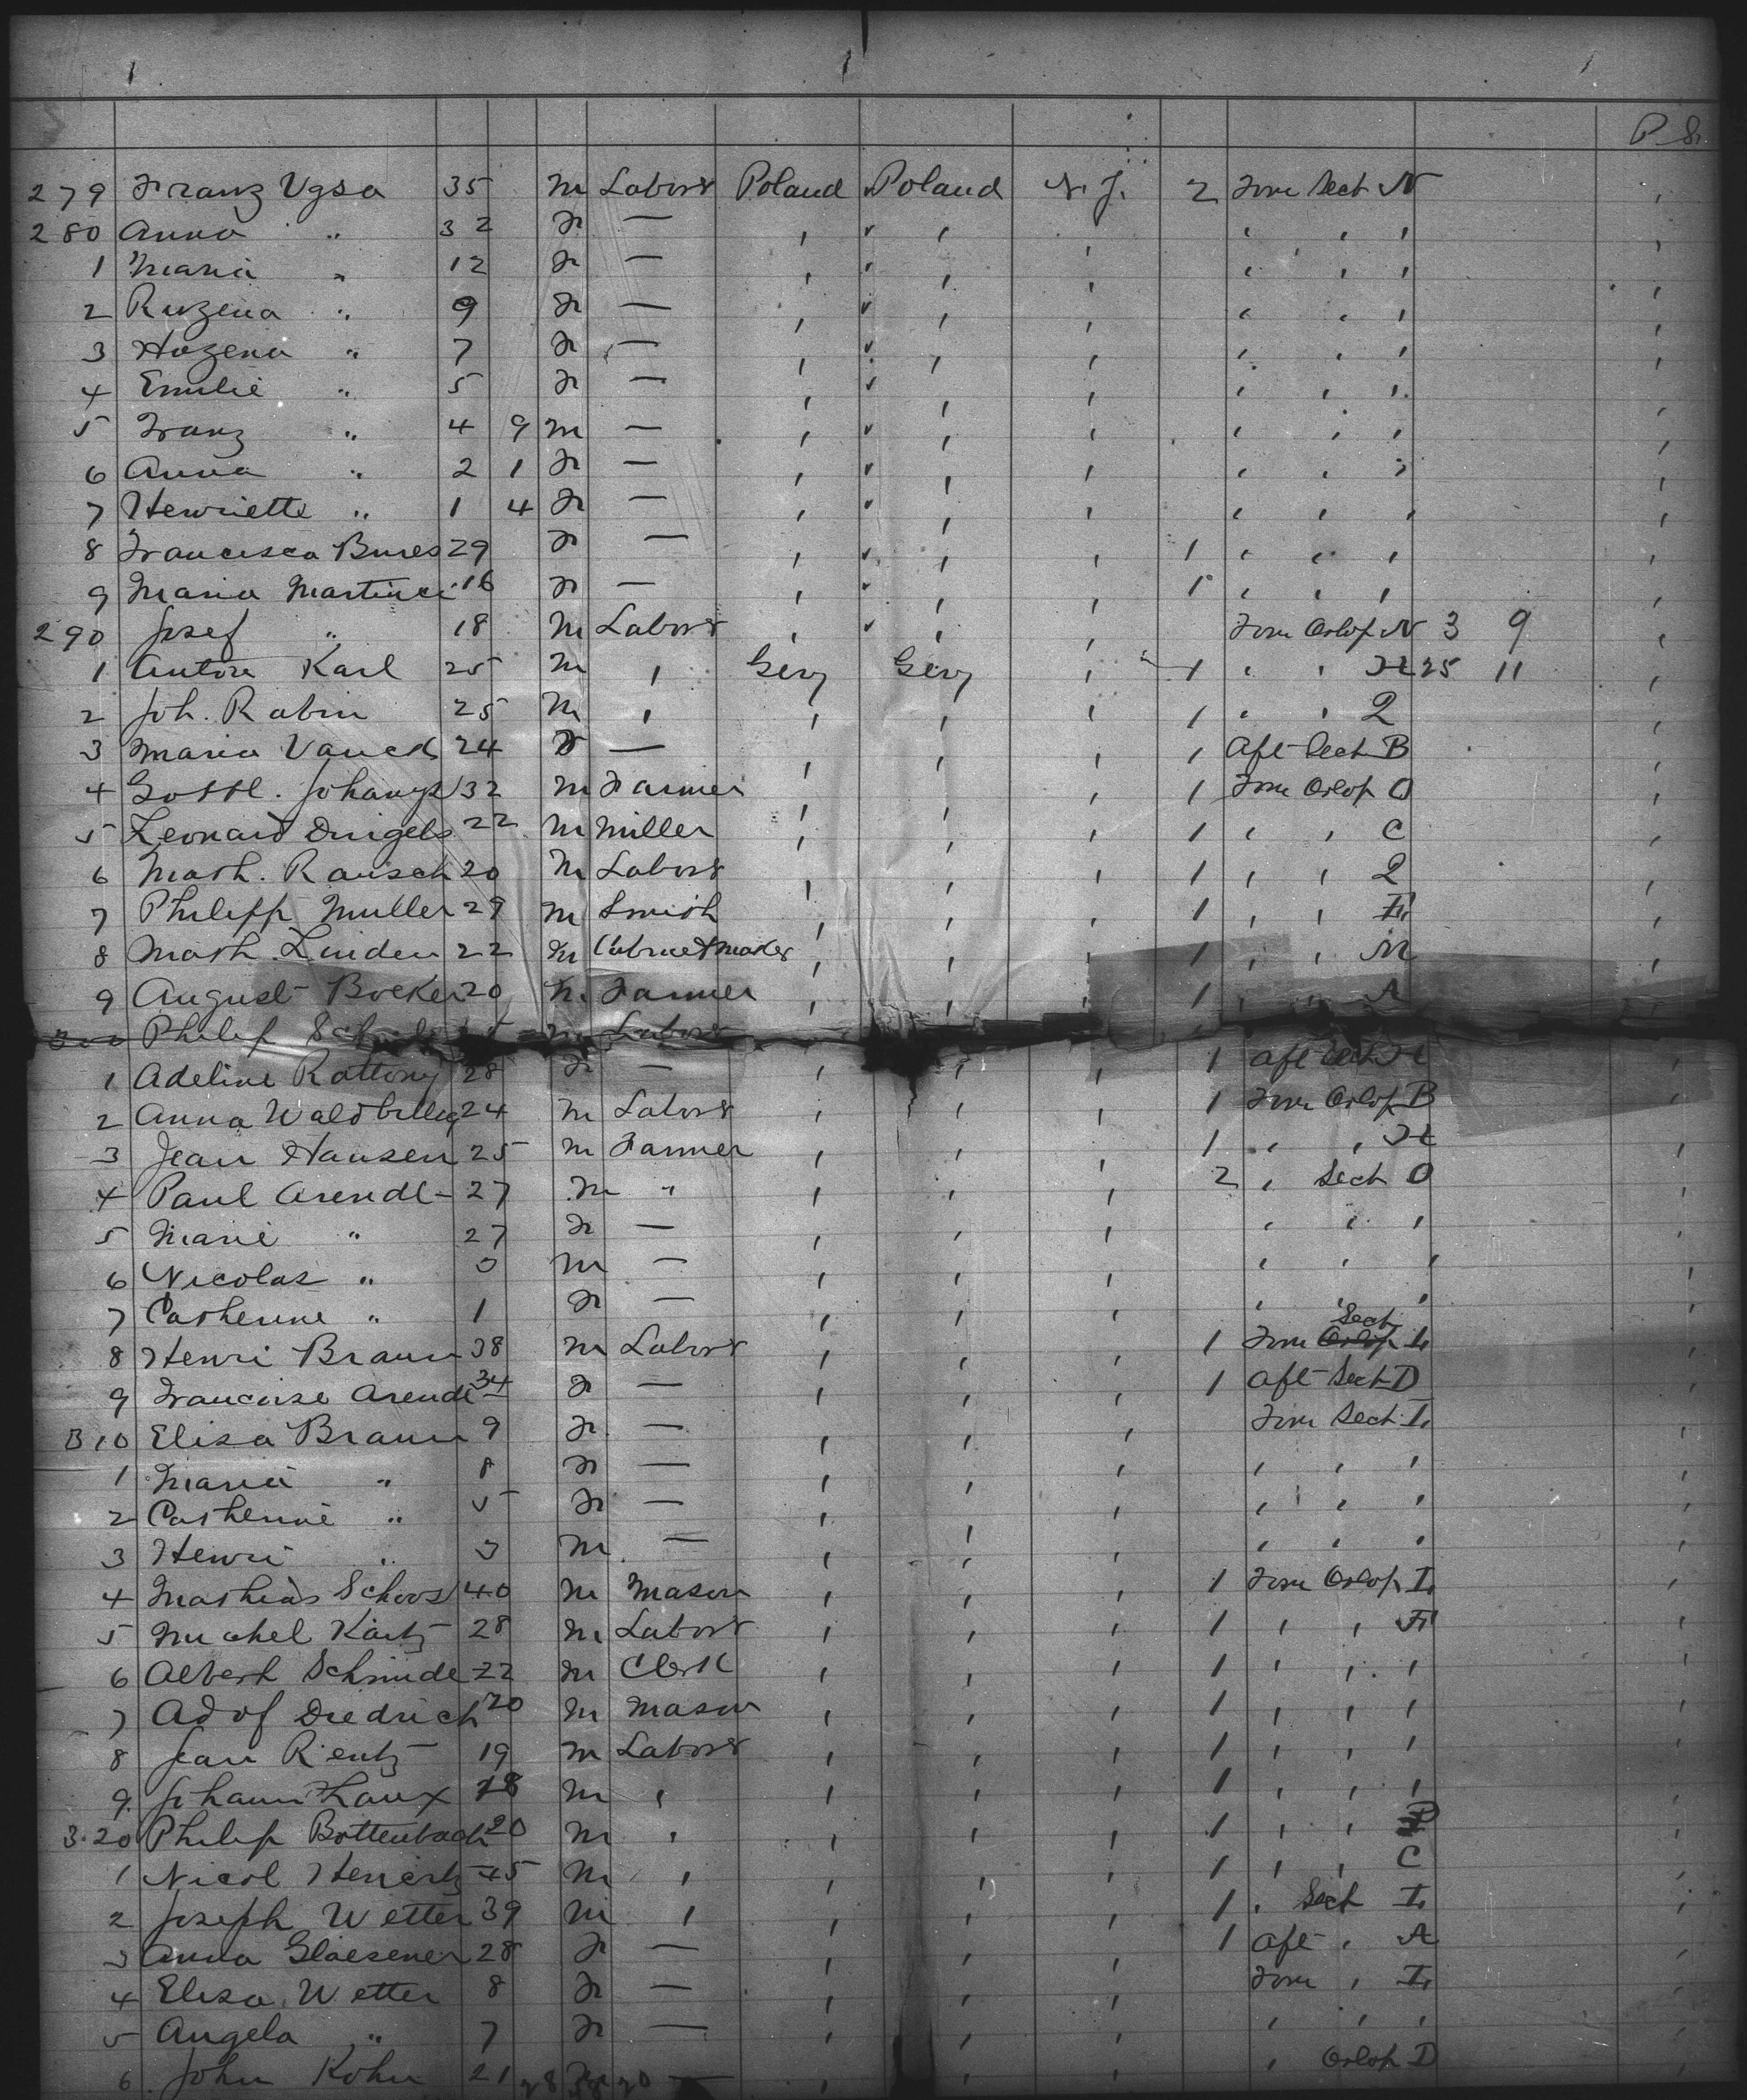 1 1 1
P. S.
279 Franz Vgsa 35 M Laborr Poland Poland N. J. 2 Forw Sect N ,
280 Anna " 32 F — , " , , , , , ,
1 Maria " 12 F — , " , , , , , ,
2 Ruzena " 9 F — , " , , , , , ,
3 Hozena " 7 F — , " , , , , , ,
4 Emilie " 5 F — , " , , , , , ,
5 Franz " 4 9 M — , " , , , , , ,
6 Anna " 2 1 F — , " , , , , , ,
7 Henriette " 1 4 F — , " , , , , , ,
8 Francisca Bures 29 F — , " , , 1 , , , ,
9 Maria Martinec 16 F — , " , , 1 , , , ,
290 Josef " 18 M Laborr , " , , Forw Orlop N 3 9 ,
1 Anton Karl 25 M , Gery Gery , 1 , , H 25 11 ,
2 Joh. Rabin 25 M , , , , 1 , , Q ,
3 Maria Vaneck 24 F — , , , 1 Aft Sect B ,
4 Gottl. 32 M Farmer , , , 1 Forw Orlop O ,
5 Leonard Dingels 22 M Miller , , , 1 , , C ,
6 Math. Rausch 20 M Laborr , , , 1 , , Q ,
7 Philipp Muller 29 M Smith , , , 1 , , F ,
8 Math. Linden 22 M Cabinetmaker , , , 1 , , M ,
9 August Boeker 20 M Farmer , , , 1 , , A ,
300 Philip M Laborr
1 Adeline Rottony 28 F — , , , 1 Aft Sect H ,
2 Anna Waldbillig 24 M Laborr , , , 1 Forw Orlop B ,
3 Jean Hansen 25 M Farmer , , , 1 , , H ,
4 Paul Arendt 27 M " , , , 2 , Sect O ,
5 Marie " 27 F — , , , , , , ,
6 Nicolas " 3 M — , , , , , , ,
7 Catherine " 1 F — , , , , , , ,
8 Henri Braun 38 M Laborr , , , 1 Forw Orlop Sect I ,
9 Francoise Arendt 34 F — , , , 1 Aft Sect D ,
310 Elisa Braun 9 F — , , , Forw Sect I ,
1 Maria " 8 F — , , , , , , ,
2 Catherine " 5 F — , , , , , , ,
3 Henri " 3 M — , , , , , , ,
4 Mathias Schoos 40 M Mason , , , 1 Forw Orlop I ,
5 Michel Kartz 28 M Laborr , , , 1 , , F ,
6 Albert Schmide 22 M Clerk , , , 1 , , , ,
7 Adolf Diedrich 20 M Mason , , , 1 , , , ,
8 Jean Rentz 19 M Laborr , , , 1 , , , ,
9 Johann Laux 18 M , , , , 1 , , , ,
320 Philip Bottenbach 20 M , , , , 1 , , D ,
1 Nicol 45 M , , , , 1 , , C ,
2 Joseph Wetter 39 M , , , , 1 , Sect I ,
3 Anna Glaesener 28 F — , , , 1 Aft , A ,
4 Elisa Wetter 8 F — , , , Forw , I ,
5 Angela " 7 F — , , , , , , ,
6 John Kohn 21 M — , , , , Orlop D ,